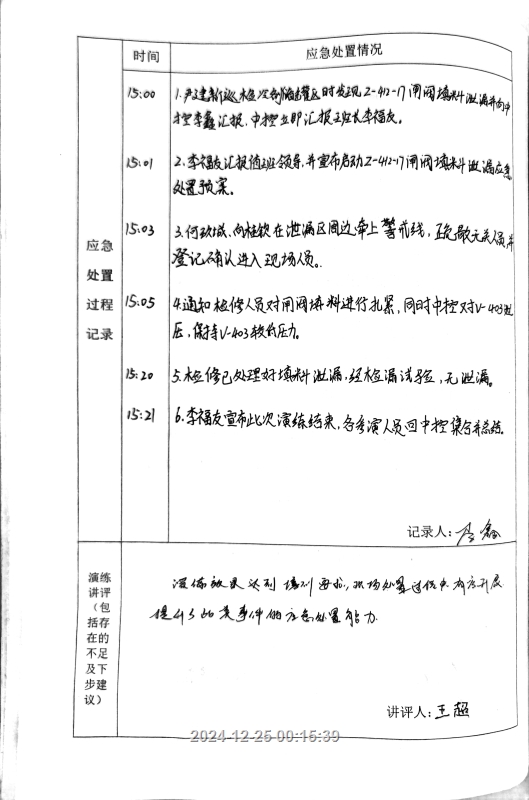 时间
应急处置情况
15:00
1.严建新巡检次钠罐区时发现Z-412-17闸阀填料泄漏并向中
控李鑫汇报,中控立即汇报班长李福友。
15:01
2.李福友汇报值班领导,并宣布启动Z-412-17闸阀填料泄漏应急
处置预案。
15:03
3.何玖城、向桂钦在泄漏区周边牵上警戒线,疏散无关人员并
登记确认进入现场人员。
15:05
4.通知检修人员对闸阀填料进行扎紧,同时中控对V-403泄
压,保持V-403较低压力。
15:20
5.检修已处理好填料泄漏,经检漏试验,无泄漏。
15:21
6.李福友宣布此次演练结束,各参演人员回中控集合并总结。
应急
处置
过程
记录
记录人:李鑫
演练
讲评
(包
括存
在的
不足
及下
步建
议)
演练效果达到 要求,现场处置过程中有序开展
提升了 类事件的应急处置能力
讲评人:王超
2024-12-25 00:15:39